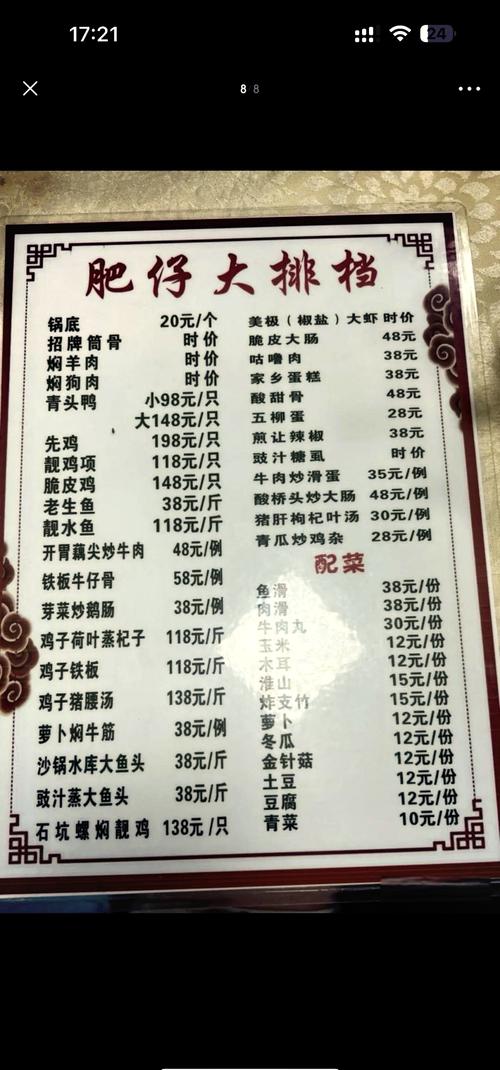 17:21
24
8 8
肥仔大排档
锅底 20元/个
招牌筒骨 时价
焖羊肉 时价
焖狗肉 时价
青头鸭 小98元/只
大148元/只
先鸡 198元/只
靓鸡项 118元/只
脆皮鸡 148元/只
老生鱼 38元/斤
靓水鱼 118元/斤
开胃藕尖炒牛肉 48元/例
铁板牛仔骨 58元/例
芽菜炒鹅肠 38元/例
鸡子荷叶蒸杞子 118元/斤
鸡子铁板 118元/斤
鸡子猪腰汤 138元/斤
萝卜焖牛筋 38元/例
沙锅水库大鱼头 38元/斤
豉汁蒸大鱼头 38元/斤
石坑螺焖靓鸡 138元/只
美极（椒盐）大虾 时价
脆皮大肠 48元
咕噜肉 38元
家乡蛋糕 38元
酸甜骨 48元
五柳蛋 28元
煎让辣椒 38元
豉汁糖虱 时价
牛肉炒滑蛋 35元/例
酸桥头炒大肠 48元/例
猪肝枸杞叶汤 30元/例
青瓜炒鸡杂 28元/例
配菜
鱼滑 38元/份
肉滑 38元/份
牛肉丸 30元/份
玉米 12元/份
木耳 12元/份
淮山 15元/份
炸支竹 15元/份
萝卜 12元/份
冬瓜 12元/份
金针菇 12元/份
土豆 12元/份
豆腐 12元/份
青菜 10元/份